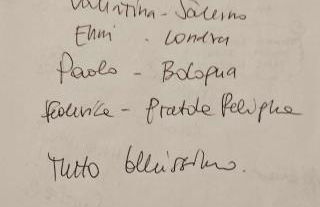 Valentina - Salerno
Emi - Londra
Paolo - Bologna
Federica - Pratola Peligna
Tutto bellissimo.